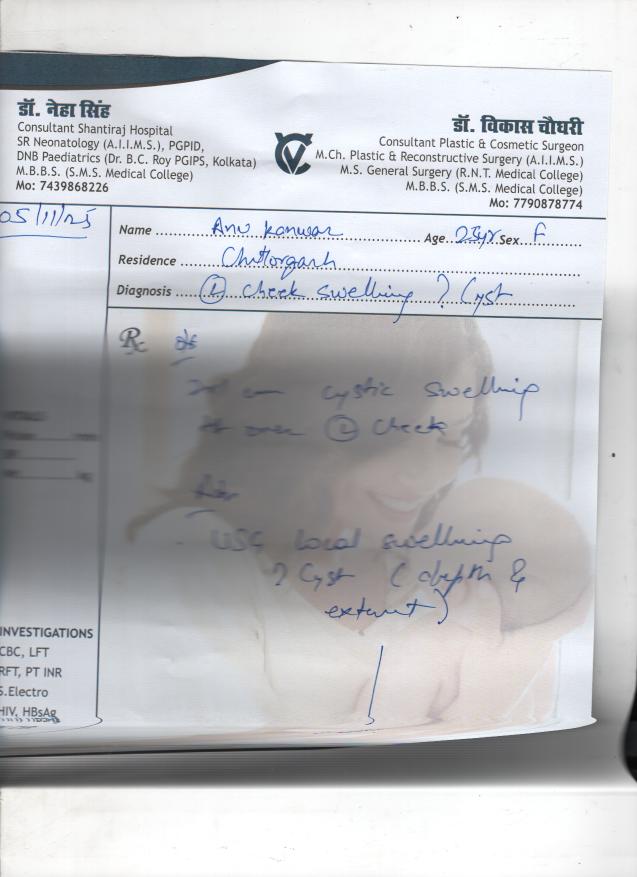 डॉ. नेहा सिंह
Consultant Shantiraj Hospital
SR Neonatology (A.I.I.M.S.), PGPID,
DNB Paediatrics (Dr. B.C. Roy PGIPS, Kolkata)
M.B.B.S. (S.M.S. Medical College)
Mo: 7439868226
VC
डॉ. विकास चौधरी
Consultant Plastic & Cosmetic Surgeon
M.Ch. Plastic & Reconstructive Surgery (A.I.I.M.S.)
M.S. General Surgery (R.N.T. Medical College)
M.B.B.S. (S.M.S. Medical College)
Mo: 7790878774
05/11/25
Name Anu Kanwar Age Sex F
Residence Chittorgarh
Diagnosis Ⓛ cheek swelling ? Cyst
Rx o/e
cm cystic swelling
over Ⓛ cheek
Adv
USG local swelling
? Cyst (depth &
extent)
INVESTIGATIONS
CBC, LFT
RFT, PT INR
S.Electro
HIV, HBsAg